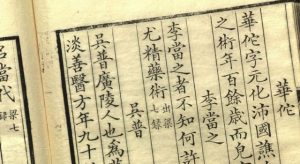 華佗
華佗字元化沛國譙
之術年百餘歲而見
李當之
李當之者不知何許
尤精藥術出梁七録
吳普
吳普廣陵人也爲華
淡善醫方年九十
名當代